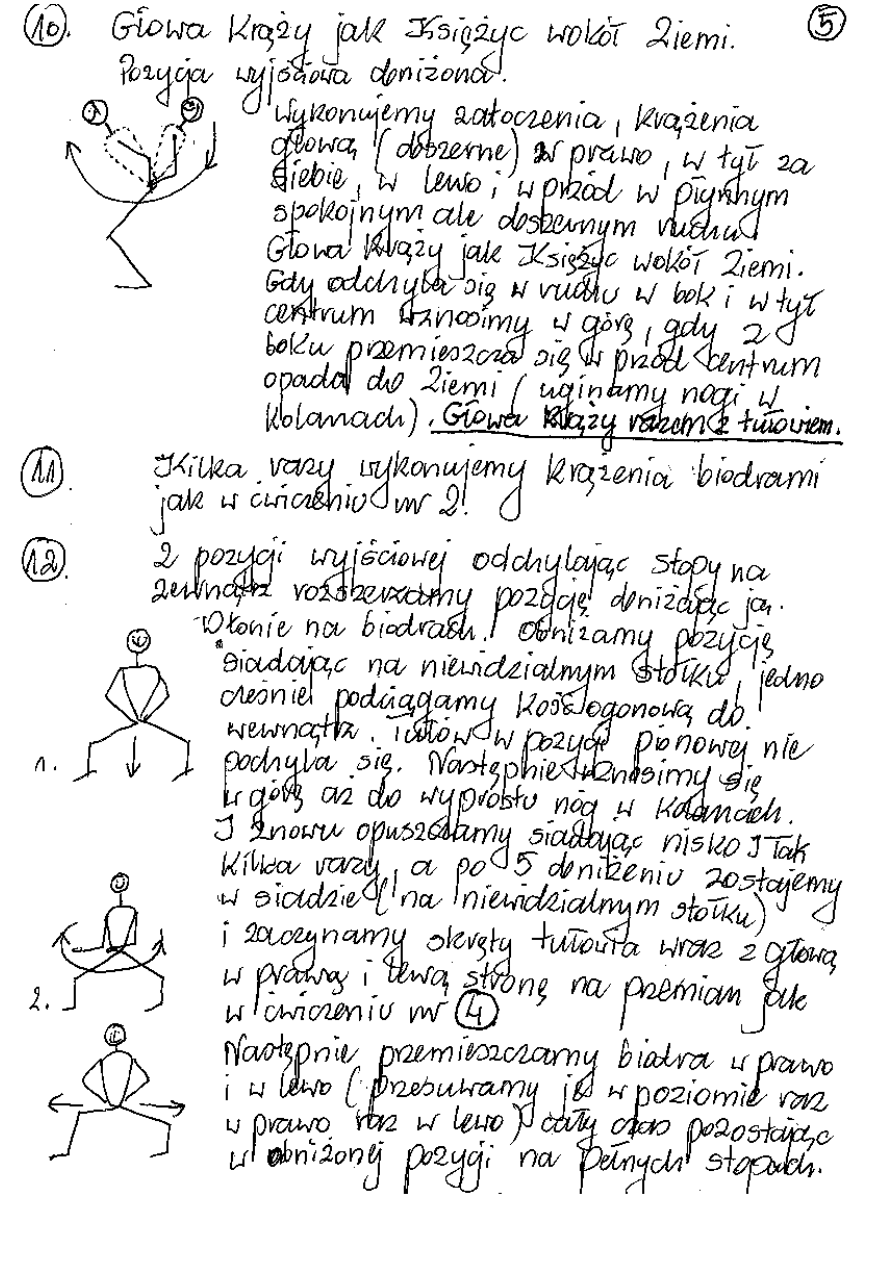 10. Głowa krąży jak Księżyc wokół Ziemi. 5
Pozycja wyjściowa doniżona.
Wykonujemy zatoczenia, krążenia
głową (obszerne) w prawo, w tył za
siebie, w lewo i w przód w płynnym
spokojnym ale obszernym ruchu.
Głowa krąży jak Księżyc wokół Ziemi.
Gdy odchyla się w ruchu w bok i w tył
centrum wznosimy w górę, gdy z
boku przemieszcza się w przód centrum
opada do Ziemi (uginamy nogi w
kolanach). Głowa krąży razem z tułowiem.
11. Kilka razy wykonujemy krążenia biodrami
jak w ćwiczeniu nr 2!
12. Z pozycji wyjściowej odchylając stopy na
zewnątrz rozszerzamy pozycję doniżając ją.
Dłonie na biodrach. Obniżamy pozycję
siadając na niewidzialnym stołku, jedno
cześnie podciągamy kość ogonową do
wewnątrz. Tułów w pozycji pionowej nie
pochyla się. Następnie wznosimy się
1. w górę aż do wyprostu nóg w kolanach.
I znowu opuszczamy siadając nisko I tak
kilka razy, a po 5 doniżeniu zostajemy
w siadzie (na niewidzialnym stołku)
i zaczynamy skręty tułowia wraz z głową
w prawą i lewą stronę na przemian jak
2. w ćwiczeniu nr 4
Następnie przemieszczamy biodra w prawo
i w lewo (przesuwamy je w poziomie raz
w prawo raz w lewo) cały czas pozostając
w obniżonej pozycji na pełnych stopach.